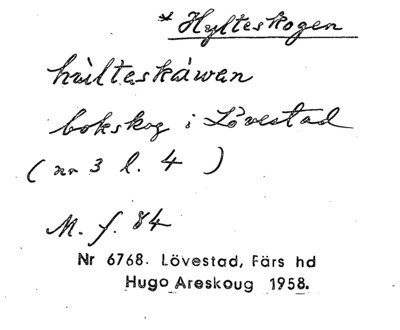 * Hylteskogen
hùlteskáwan
bokskog i Lövestad
(nr 3 l. 4)
M. f. 84
Nr 6768. Lövestad, Färs hd
Hugo Areskoug 1958.